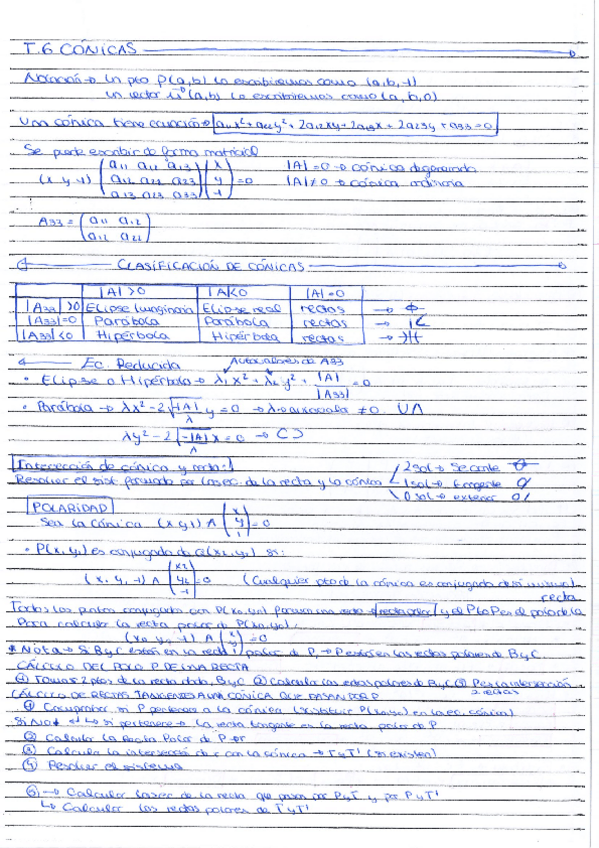 T.6 CÓNICAS
Notación → Un pto P(a,b) lo escribiremos como (a,b,1)
un vector u(a,b) lo escribiremos como (a,b,0)
Una cónica tiene ecuación → a11x²+a22y²+2a12xy+2a13x+2a23y+a33=0
Se puede escribir de forma matricial
(x y 1) (a11 a12 a13 / a12 a22 a23 / a13 a23 a33) (x / y / 1) = 0
|A|=0 → cónica degenerada
|A|≠0 → cónica ordinaria
A33 = (a11 a12 / a12 a22)
CLASIFICACIÓN DE CÓNICAS
|A|>0 |A|<0 |A|=0
|A33|>0 Elipse imaginaria Elipse real rectas
|A33|=0 Parábola Parábola rectas
|A33|<0 Hipérbola Hipérbola rectas
Ec. Reducida Autovalores de A33
• Elipse o Hipérbola → λ1x²+λ2y²+|A|/|A33|=0
• Parábola → λx²-2√(-|A|/λ) y=0 → λ → autovalor ≠0 U∩
λy²-2√(-|A|/λ) x=0 → ⊂⊃
Intersección de cónica y recta:
2 sol → secante
Resolver el sist. formado por las ec. de la recta y la cónica 1 sol → tangente
0 sol → exterior
POLARIDAD
Sea la cónica (x y 1) A (x / y / 1) = 0
• P(x1 y1) es conjugado de Q(x2,y2) si:
(x1 y1 1) A (x2 / y2 / 1) = 0 (Cualquier pto de la cónica es conjugado de sí mismo)
Todos los puntos conjugados con P(x0,y0) forman una recta recta polar y el pto P es el polo de la recta
Para calcular la recta polar de P(x0,y0):
(x0 y0 1) A (x / y / 1) = 0
* Nota → Si B y C están en la recta polar de P, → P está en las rectas polares de B y C
CÁLCULO DEL POLO P DE UNA RECTA
① Tomas 2 ptos de la recta dada, B y C ② Calcula las rectas polares de B y C ③ P es la intersección
2 rectas
CÁLCULO DE RECTAS TANGENTES A UNA CÓNICA QUE PASAN POR P
① Comprobar si P pertenece a la cónica (sustituir P(x0,y0) en la ec. cónica)
Si No ↓ ↳ si pertenece → La recta tangente es la recta polar de P
② Calcular la Recta Polar de P → r
③ Calcula la intersección de r con la cónica → T y T' (si existen)
④ Resolver el sistema
⑤ → Calcular la ec de la recta que pasa por P y T y por P y T'
↳ Calcular las rectas polares de T y T'